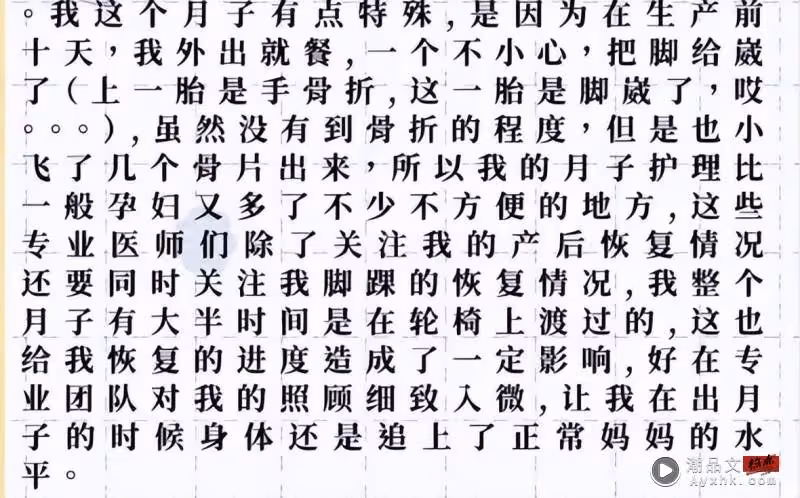 。我这个月子有点特殊,是因为在生产前
十天，我外出就餐,一个不小心，把脚给崴
了(上一胎是手骨折,这一胎是脚崴了，哎
。。。),虽然没有到骨折的程度，但是也小
飞了几个骨片出来，所以我的月子护理比
一般孕妇又多了不少不方便的地方,这些
专业医师们除了关注我的产后恢复情况
还要同时关注我脚踝的恢复情况,我整个
月子有大半时间是在轮椅上渡过的,这也
给我恢复的进度造成了一定影响,好在专
业团队对我的照顾细致入微,让我在出月
子的时候身体还是追上了正常妈妈的水
平。
潮品文
Ayxhk.com